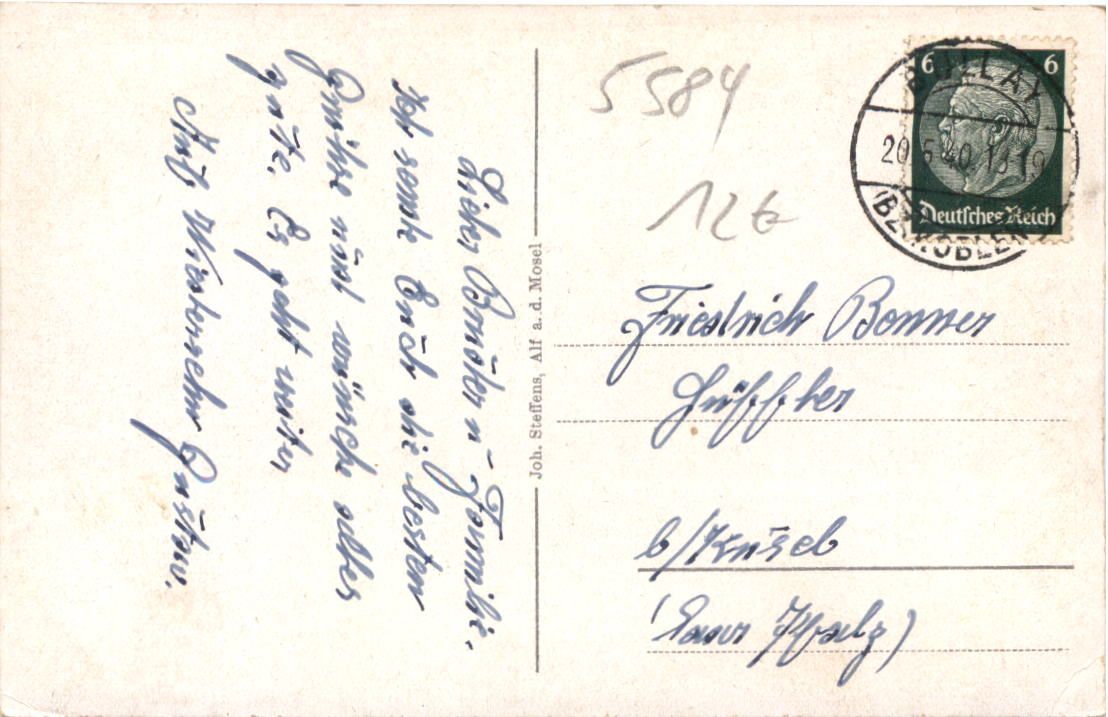 Lieber Bruder u. Familie.
Ich sende Euch die besten
Grüße und wünsche alles
gute. Es geht weiter
Auf Wiedersehn Gustav.
Joh. Steffens, Alf a. d. Mosel
5584
12€
6 6
Deutsches Reich
BULLAY
20.5.40. 18-19
(BZ. KOBLENZ)
Friedrich Bonner
Hüffler
b/Kusel
(Saar Pfalz)